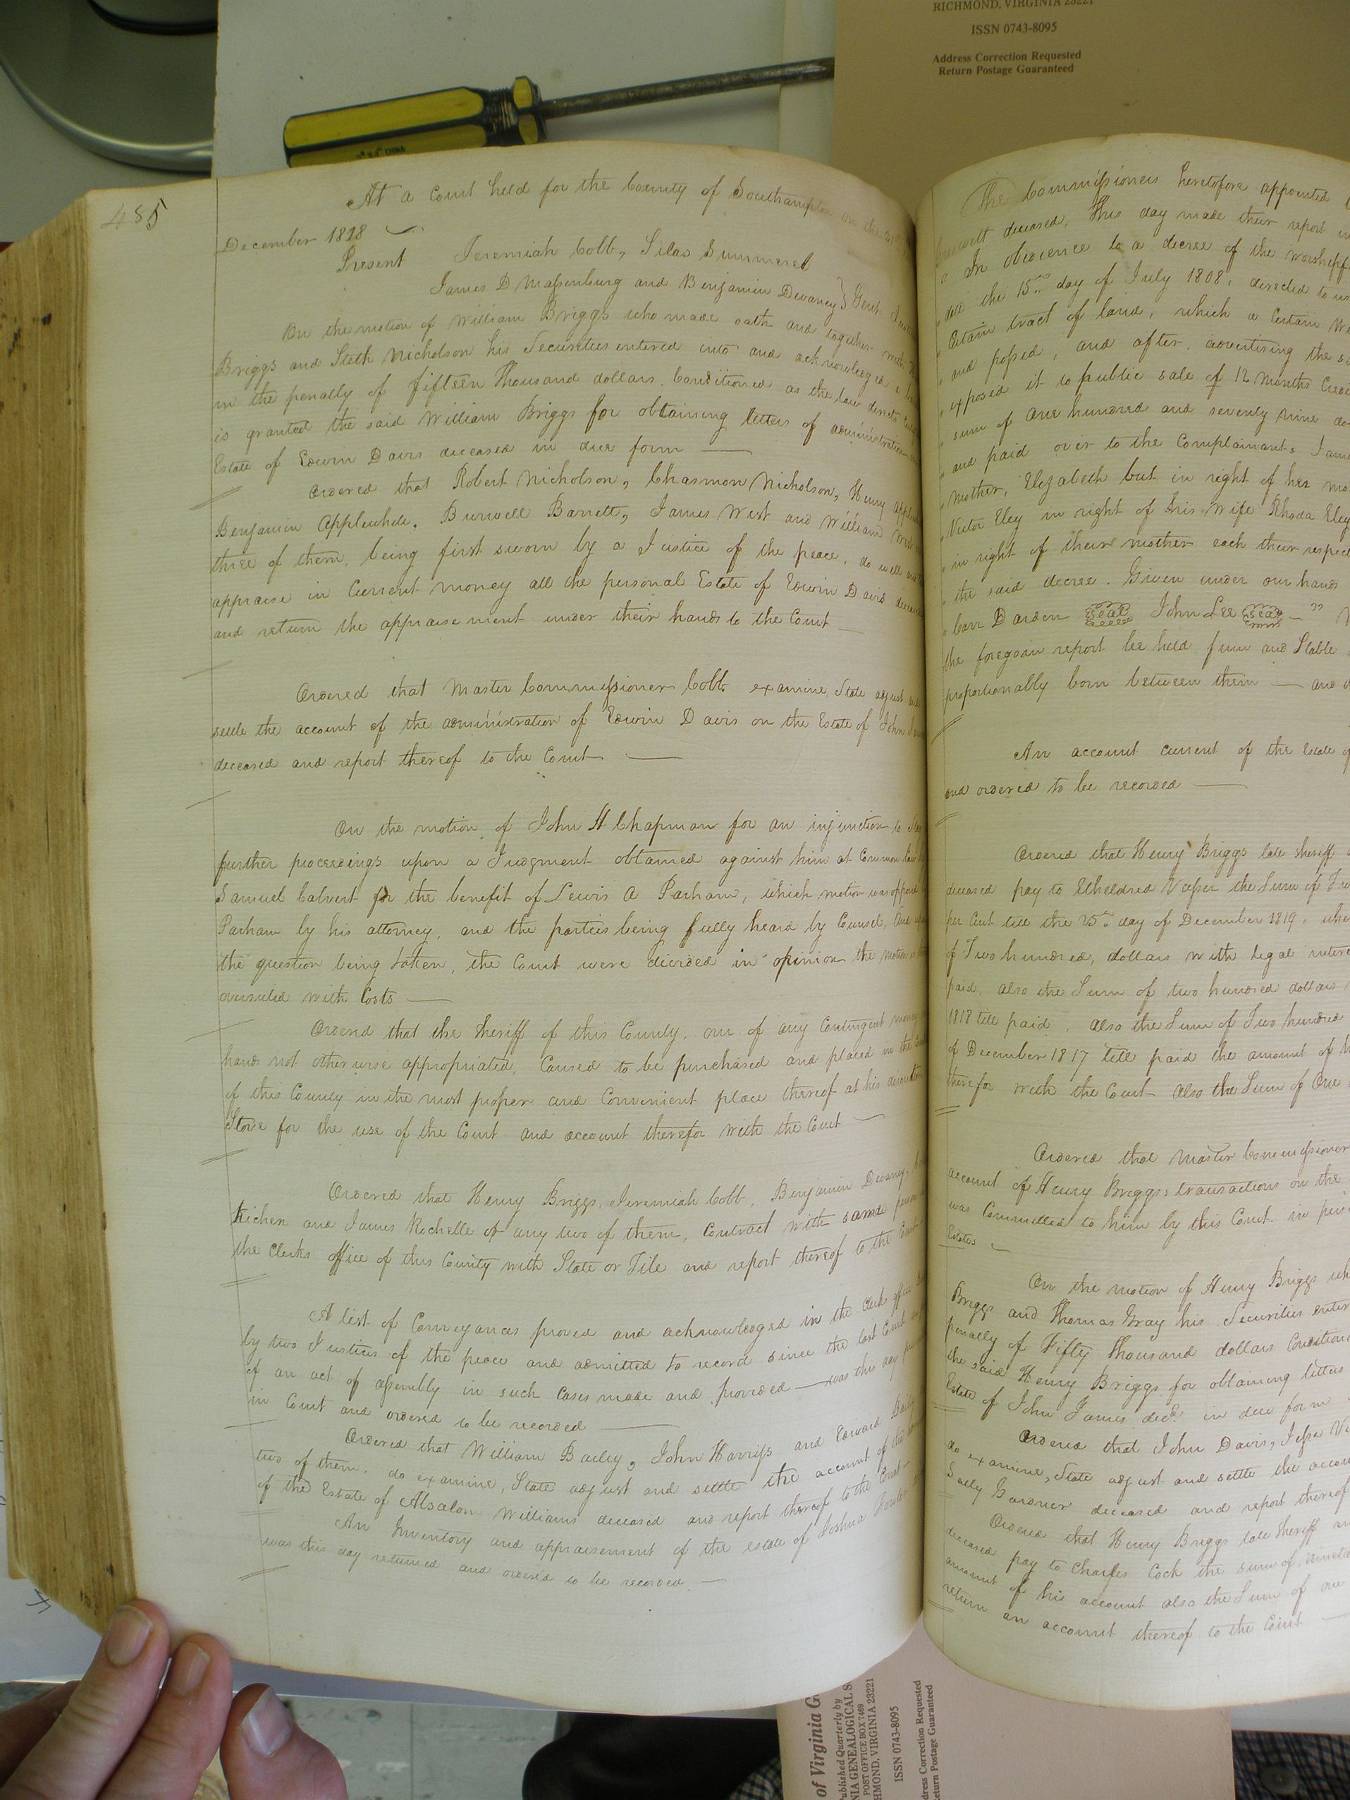 RICHMOND, VIRGINIA 23221
ISSN 0743-8095
Address Correction Requested
Return Postage Guaranteed
485
At a Court held for the County of Southampton on the
December 1818
Present Jeremiah Cobb, Silas Summerel
James D Massenburg and Benjamin Devaney } Gent.
On the motion of William Briggs who made oath and together with
Briggs and Stith Nicholson his Securities entered into and acknowledged a
in the penalty of fifteen thousand dollars. Conditioned as the law directs
is granted the said William Briggs for obtaining letters of administration
Estate of Edwin Davis deceased in due form
Ordered that Robert Nicholson, Chasmon Nicholson, Henry
Benjamin Applewhite, Burwell Barrett, James West and William
three of them, being first sworn by a Justice of the peace, do
appraise in Current money all the personal Estate of Edwin Davis
and return the appraisement under their hands to the Court
Ordered that Master Commissioner Cobb examine, State adjust and
settle the account of the administration of Edwin Davis on the Estate of John
deceased and report thereof to the Court
On the motion of John H Chapman for an injunction to
further proceedings upon a Judgment obtained against him at Common law
Samuel Calvert for the benefit of Lewis A Parham, which motion was
Parham by his attorney, and the parties being fully heard by Counsel, and
the question being taken, the Court were divided in opinion the motion
overruled with Costs
Ordered that the Sheriff of this County, out of any Contingent money
hand not otherwise appropriated, Caused to be purchased and placed in the
of this County in the most proper and Convenient place thereof at his discretion
Stove for the use of the Court and account therefor with the Court
Ordered that Henry Briggs, Jeremiah Cobb, Benjamin Devany,
Kichen and James Rochelle or any two of them, Contract with some person
the Clerks office of this County with Slate or Tile and report thereof to the Court
A list of Conveyances proved and acknowledged in the Clerk office
by two Justices of the peace and admitted to record since the last Court
of an act of assembly in such Cases made and provided was this day
in Court and ordered to be recorded
Ordered that William Bailey, John Harriss and Edward
two of them, do examine, State adjust and settle the account of the
of the Estate of Absalom Williams deceased and report thereof to the Court
An Inventory and appraisement of the estate of Joshua
was this day returned and ordered to be recorded
The Commissioners heretofore appointed
deceased, this day made their report
In obedience to a decree of the worshipful
date the 15th day of July 1808, directed to us
Certain tract of land, which a Certain
and possed, and after advertising the
exposed it to public sale of 12 Months Credit
sum of one hundred and seventy nine
and paid over to the Complainants
mother, Elizabeth but in right of her
Victor Eley in right of his wife Rhoda Eley
in right of their mother each their
the said decree. Given under our hands
Carr Darden seal John Lee seal
the foregoan report be held firm and Stable
proportionably born between them and
An account current of the Estate of
and ordered to be recorded
Ordered that Henry Briggs late Sheriff
deceased pay to Etheldred Vasser the Sum of
per Cent till the 25th day of December 1819
of Two hundred, dollars with legal
paid, also the Sum of two hundred dollars
1818 till paid, also the Sum of Two hundred
of December 1817 till paid the amount of
therefor with the Court also the Sum of One
Ordered that Master Commissioner
account of Henry Briggs, transactions on the
was Committed to him by this Court in
Estates
On the motion of Henry Briggs
Briggs and Thomas Gray his Securities
penalty of Fifty thousand dollars
the said Henry Briggs for obtaining letters
Estate of John James decd in due form
Ordered that John Davis, Jesse
do examine, State adjust and settle the
Sally Gardner deceased and report thereof
Ordered that Henry Briggs late Sheriff
deceased pay to Charles Cock the sum of
amount of his account also the Sum of one
return an account thereof to the Court
of Virginia
Published Quarterly by
GENEALOGICAL
POST OFFICE BOX 7469
RICHMOND, VIRGINIA 23221
ISSN 0743-8095
Address Correction Requested
Return Postage Guaranteed